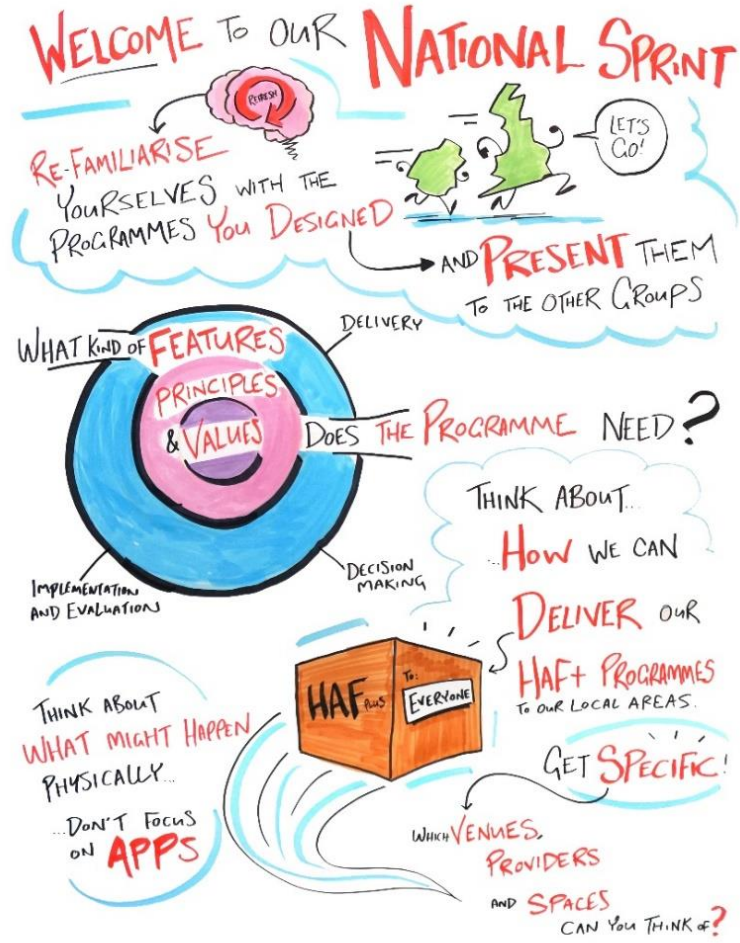 WELCOME TO OUR NATIONAL SPRINT
REFRESH
LET'S
GO!
RE-FAMILIARISE
YOURSELVES WITH THE
PROGRAMMES YOU DESIGNED
AND PRESENT THEM
TO THE OTHER GROUPS
DELIVERY
WHAT KIND OF FEATURES
PRINCIPLES
& VALUES DOES THE PROGRAMME NEED?
IMPLEMENTATION
AND EVALUATION
DECISION
MAKING
THINK ABOUT...
...HOW WE CAN
DELIVER OUR
HAF+ PROGRAMMES
TO OUR LOCAL AREAS.
HAF PLUS
TO:
EVERYONE
THINK ABOUT
WHAT MIGHT HAPPEN
PHYSICALLY...
...DON'T FOCUS
ON APPS
GET SPECIFIC!
WHICH VENUES,
PROVIDERS
AND SPACES
CAN YOU THINK OF?